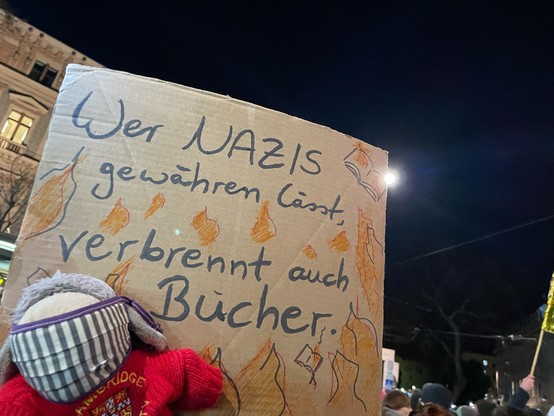 Wer NAZIS
gewähren lässt,
verbrennt auch
Bücher.
CAMBRIDGE